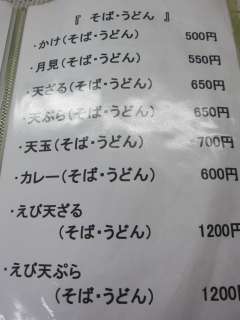 『 そば・うどん 』
・かけ(そば・うどん) 500円
・月見(そば・うどん) 550円
・天ざる(そば・うどん) 650円
・天ぷら(そば・うどん) 650円
・天玉(そば・うどん) 700円
・カレー(そば・うどん) 600円
・えび天ざる
(そば・うどん) 1200円
・えび天ぷら
(そば・うどん) 1200円